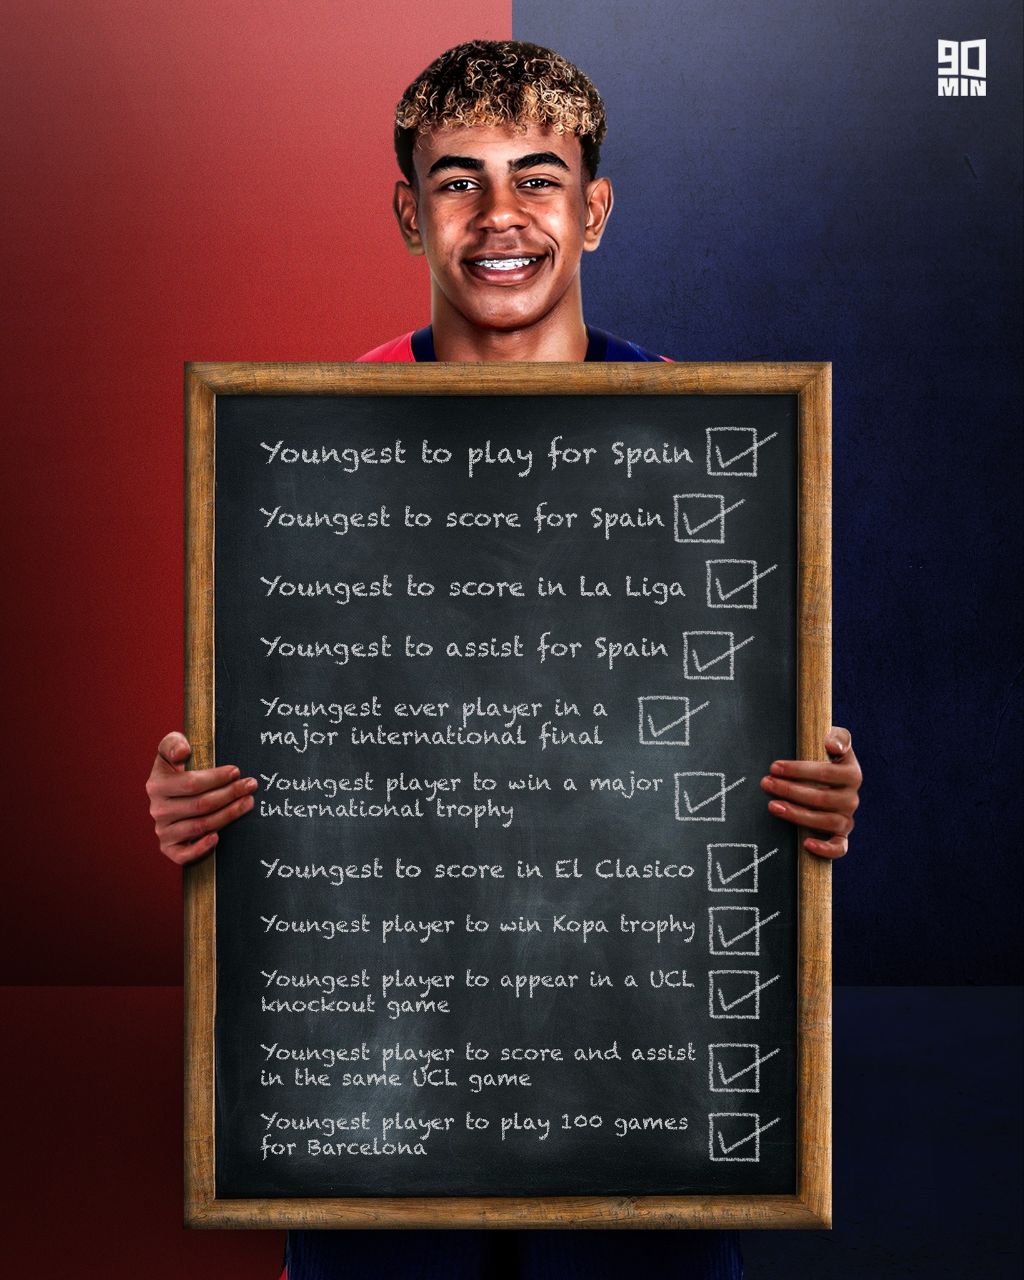 90
MIN
Youngest to play for Spain
Youngest to score for Spain
Youngest to score in La Liga
Youngest to assist for Spain
Youngest ever player in a
major international final
Youngest player to win a major
international trophy
Youngest to score in El Clasico
Youngest player to win Kopa trophy
Youngest player to appear in a UCL
knockout game
Youngest player to score and assist
in the same UCL game
Youngest player to play 100 games
for Barcelona